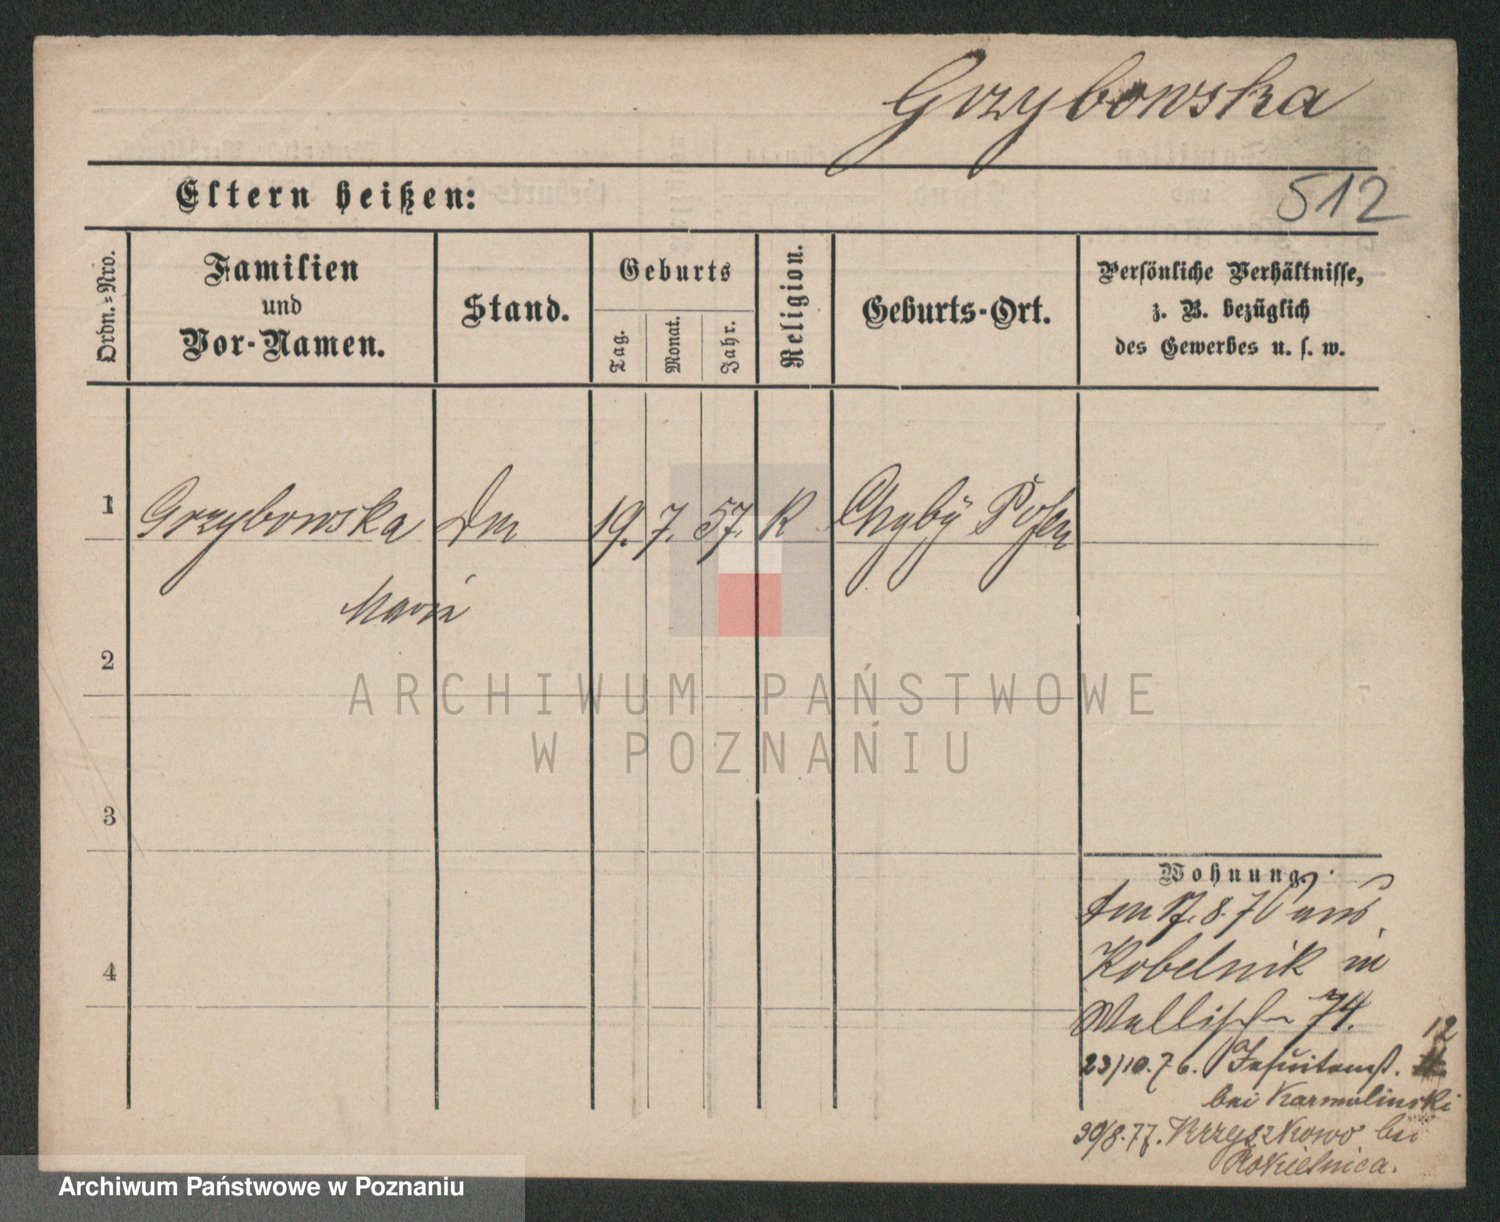 Grzybowska
Eltern heißen:
512
Ordn.=Nro.
Familien
und
Vor-Namen.
Stand.
Geburts
Tag.
Monat.
Jahr.
Religion.
Geburts-Ort.
Persönliche Verhältnisse,
z. B. bezüglich
des Gewerbes u. s. w.
1 Grzybowska Dm 19. 7. 57. K Chybÿ Posen
Maria
2
3
4
ARCHIWUM PAŃSTWOWE
W POZNANIU
Wohnung.
Am 17. 8. 76 aus
Kobelnik in
Wallisch 74.
12
23/10. 76. Jesuitenst.
bei Karmolinski
30/8. 77. Krzyszkowo bei
Rokietnica.
Archiwum Państwowe w Poznaniu